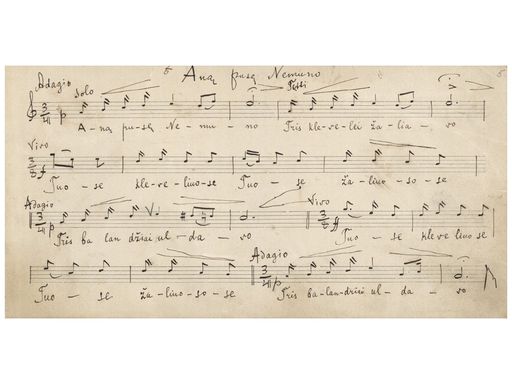 5 Aną pusę Nemuno 5
Adagio Solo Tutti
3/4 p
A - ną pu - sę Ne - mu - no Tris kle - ve - lei ža - lia - vo
Vivo
3/8 f
Tuo - se kle - ve - liuo - se Tuo - se ža - liuo - so - se
Adagio Vivo
3/4 3/8 ff
Tris ba lan džiai ul - da - vo Tuo - se kle ve liuo se
Adagio
3/4 p
Tuo - se ža - liuo - so - se Tris ba - lan - džiai ul - da - vo